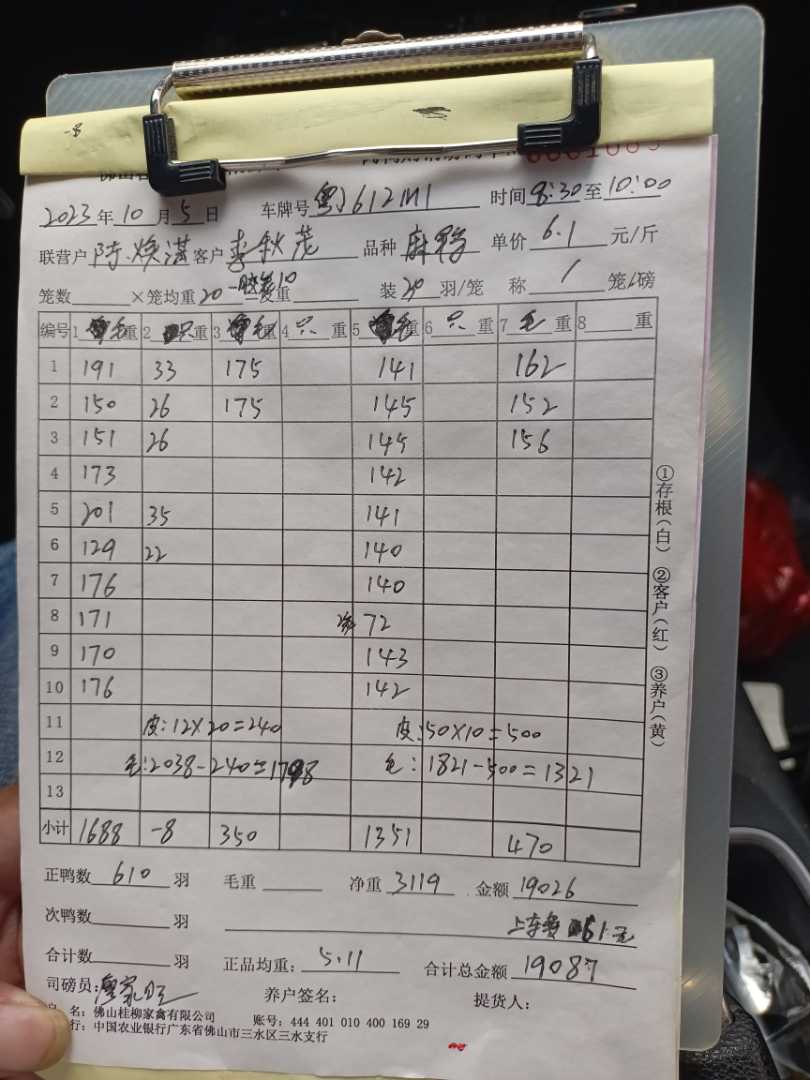 -8
2023年10月5日 车牌号粤J612M1 时间8:30至10:00
联营户陆焕满客户李秋茂 品种麻鸭 单价6.1元/斤
笼数 ×笼均重20 重 装20羽/笼 称1笼/磅
编号 1毛重 2只重 3毛重 4只重 5毛重 6只重 7毛重 8重
1 191 33 175 141 162
2 150 26 175 145 152
3 151 26 145 156
4 173 142
5 201 35 141
6 129 22 140
7 176 140
8 171 72
9 170 143
10 176 142
11 皮:12×20=240 皮:50×10=500
12 毛:2038-240=1798 毛:1821-500=1321
13
小计 1688 -8 350 1351 470
正鸭数610羽 毛重 净重3119 金额19026
次鸭数 羽 上车费61元
合计数 羽 正品均重:5.11 合计总金额19087
司磅员:廖家旺 养户签名: 提货人:
名:佛山桂柳家禽有限公司 账号:444 401 010 400 169 29
行:中国农业银行广东省佛山市三水区三水支行
①存根(白) ②客户(红) ③养户(黄)